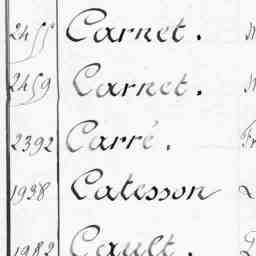 2455 Carnet.
2459 Carnet.
2392 Carré.
1938 Catesson
1982 Cault.